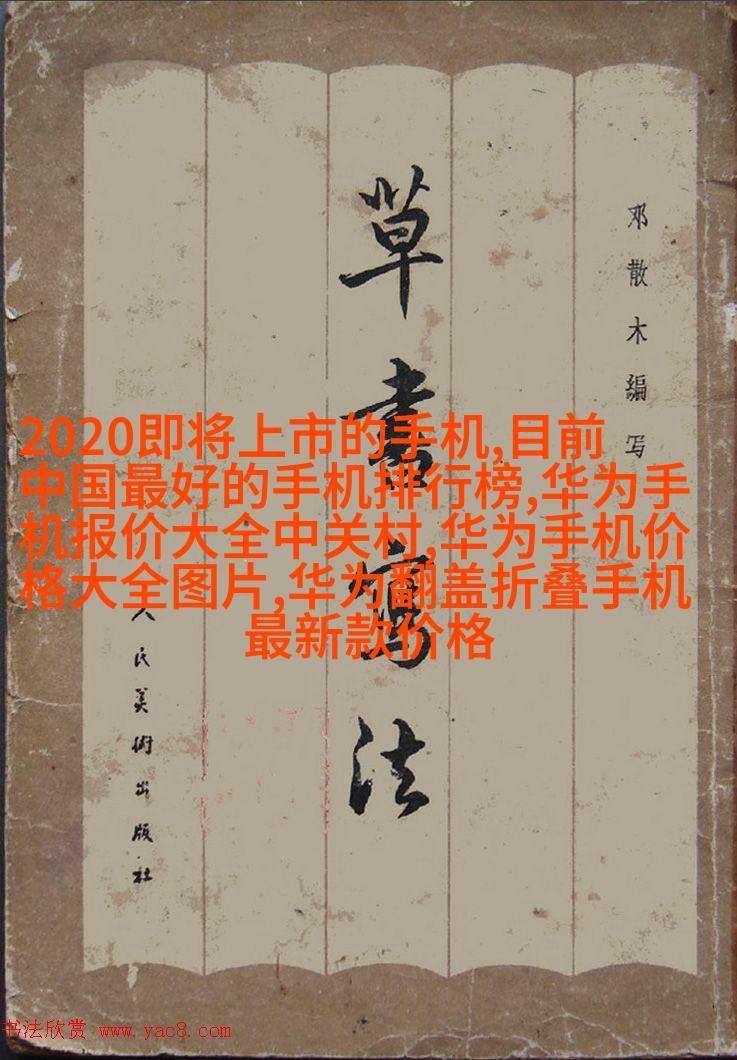 草書寫法
邓散木編写
人民美術出版社
2020即将上市的手机,目前
中国最好的手机排行榜,华为手
机报价大全中关村,华为手机价
格大全图片,华为翻盖折叠手机
最新款价格
书法欣赏 www.yac8.com